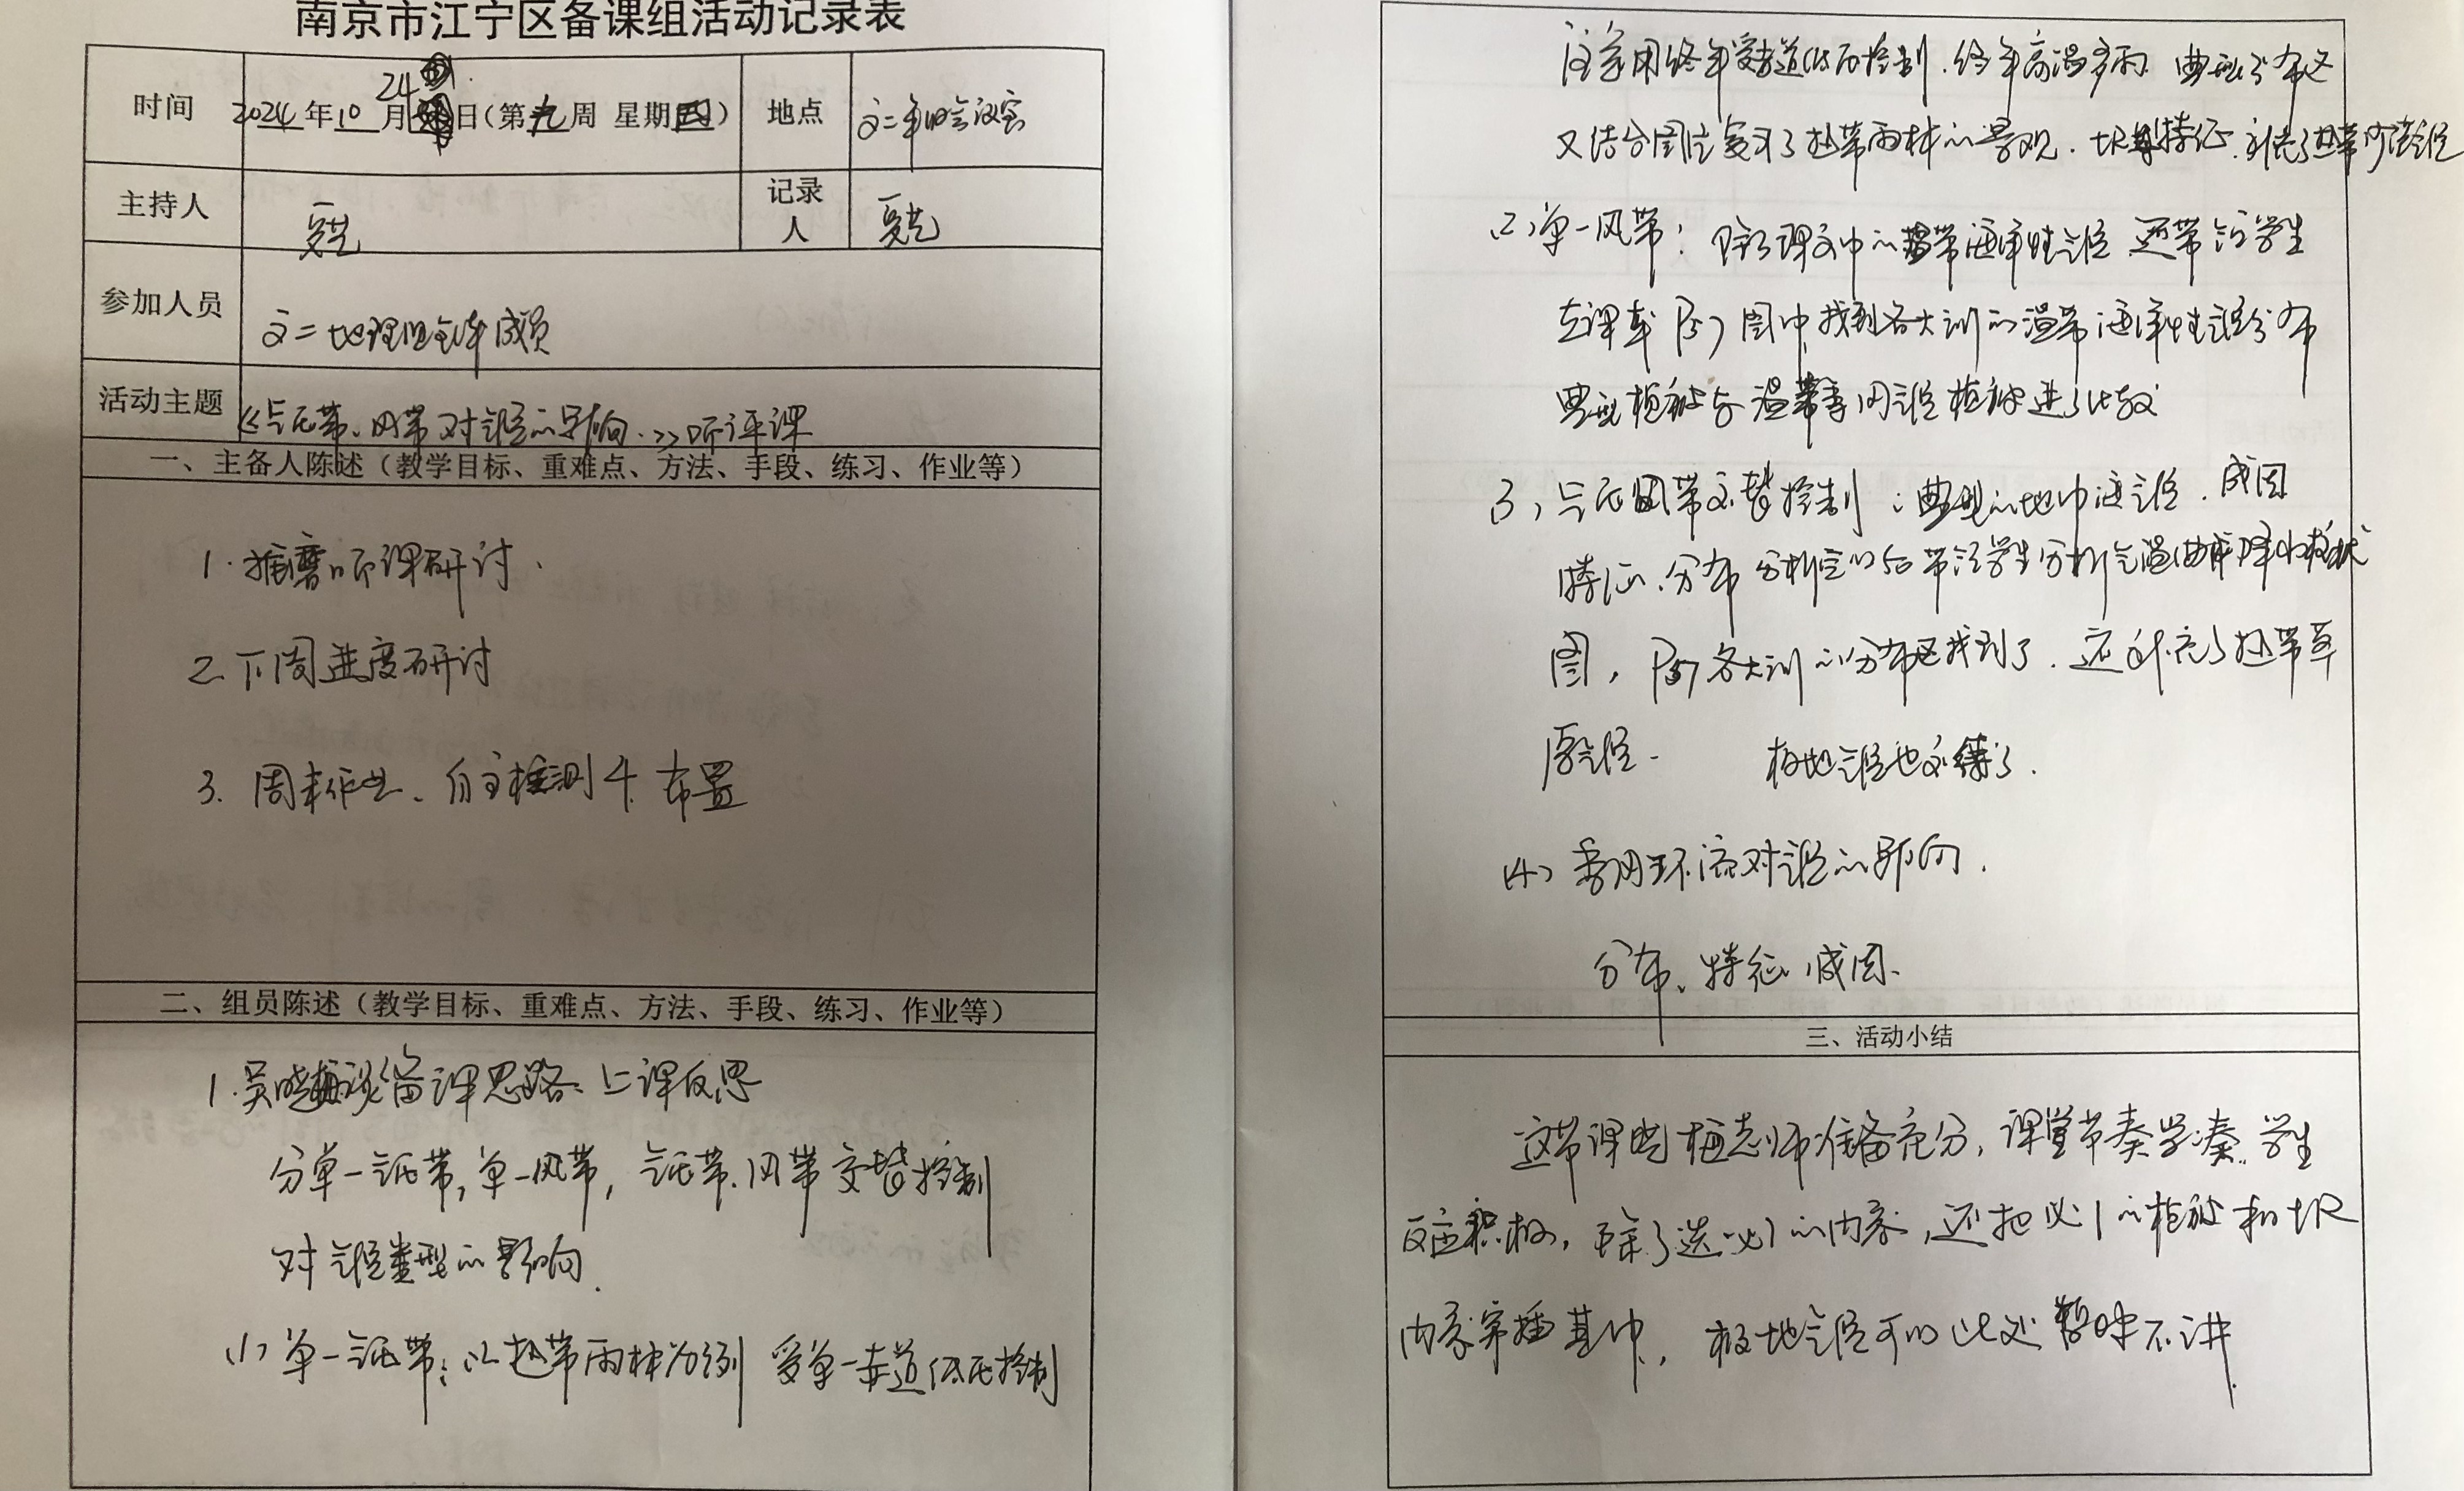 南京市江宁区备课组活动记录表
时间
24
2024年10月日(第九周 星期四)
地点
高二年级会议室
主持人
记录人
参加人员
高二地理组全体成员
活动主题
《气压带、风带对气候的影响》听评课
一、主备人陈述(教学目标、重难点、方法、手段、练习、作业等)
1. 听课研讨.
2. 下周进度研讨
3. 周末作业、自主检测4 布置
二、组员陈述(教学目标、重难点、方法、手段、练习、作业等)
1. 吴晓梅谈备课思路、上课反思
分单一气压带,单一风带,气压带、风带交替控制
对气候类型的影响.
(1) 单一气压带:以热带雨林为例 受单一赤道低压控制
终年受赤道低压控制.终年高温多雨 典型分布区
又结合图片复习了热带雨林的景观.土壤特征.补充了热带沙漠气候
(2) 单一风带:除了课文中的温带海洋性气候 还带领学生
在课本P57图中找到各大洲的温带海洋性气候分布
典型植被与温带季风气候植被进行比较
(3) 气压风带交替控制:典型的地中海气候.成因
特征、分布 分析完以后带领学生分析气温曲线降水柱状
图,P57各大洲的分布区找到了.还补充了热带草
原气候.极地气候也讲了.
(4) 季风环流对气候的影响.
分布、特征、成因、
三、活动小结
这节课晓梅老师准备充分,课堂节奏紧凑,学生
反应积极,除了选必1的内容,还把必1的植被和土壤
内容穿插其中,极地气候可以此处暂时不讲.